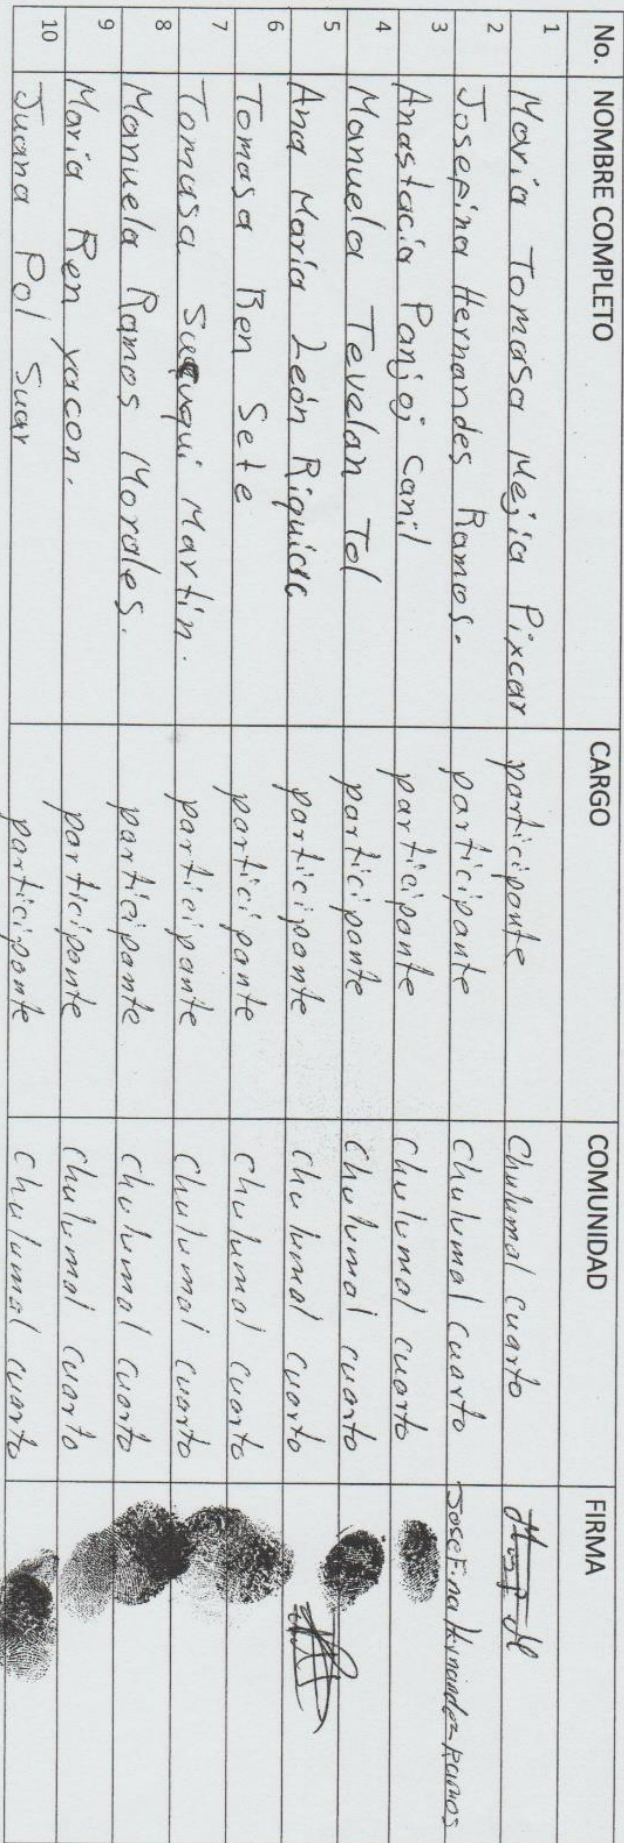 No. NOMBRE COMPLETO CARGO COMUNIDAD FIRMA
1 Maria Tomasa Mejia Pixcar participante Chulumal cuarto
2 Josefina Hernandes Ramos. participante chulumal cuarto Josefina Hernandez Ramos
3 Anastacia Panjoj Canil participante chulumal cuarto
4 Manuela Tevelan Tol participante chulumal cuarto
5 Ana Maria León Riquiac participante chulumal cuarto
6 Tomasa Ren Sete participante chulumal cuarto
7 Tomasa Martin. participante chulumal cuarto
8 Manuela Ramos Morales. participante chulumal cuarto
9 Maria Ren yacon. participante chulumal cuarto
10 Juana Pol Suar participante chulumal cuarto